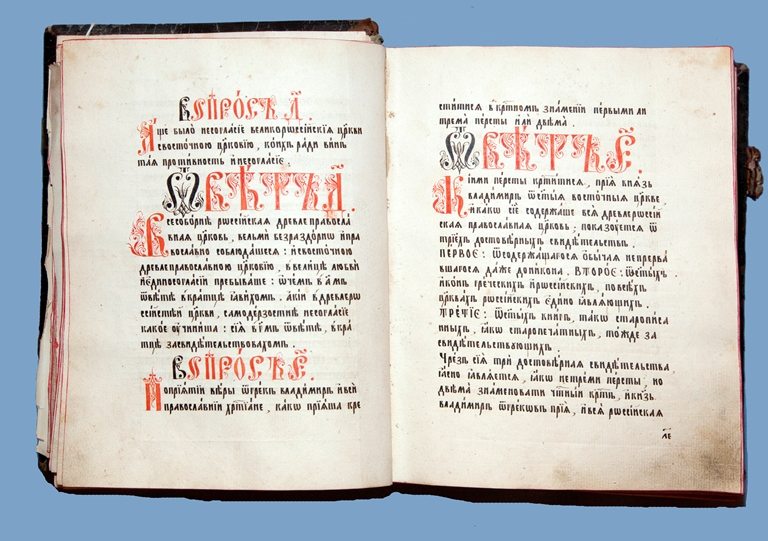 Вопро́съ д҃.
А҆́ще бы́ло несогла́сїе великорѡссі́йскїѧ цр҃кви
с̾восто́чною цр҃ковїю, ко́ихъ ра́ди ви́нъ
та́ѧ проти́вность и҆несогла́сїе.
Ѿвѣ́тъ д҃.
Всесобо́рнѣ рѡссі́йская древлеправосла́
вная цр҃ковь, вельмѝ безраздо́рнѡ и҆пра
восла́вно соблюда́шеся: и҆восто́чною
древлеправосла́вною цр҃ковїю, в̾вели́цѣ любвѝ
и҆є҆диносогла́сїи пребыва́ше: ѡ҆че́мъ в̾д҃мъ
ѿвѣ́тѣ в̾кра́тцѣ ꙗ҆ви́хомъ. а҆кі́и в̾древлерѡ
ссі́йстѣй цр҃кви, самоде́рзостнїи несогла́сїе
како́е ѹ҆чини́ша: сїѧ̀ в̾г҃мъ ѿвѣ́тѣ, в̾кра́
тцѣ засвидѣ́тельствовахомъ.
Вопро́съ є҃.
Попрїѧ́тїи вѣ́ры ѿгре́къ влади́миръ и҆всѝ
правосла́внїи хр҃тїа́не, ка́кѡ прїѧ́ша кре
сти́тися в̾кр҃тномъ зна́менїи пе́рвыми ли
трема̀ пе́рсты и҆лѝ двѣма̀.
Ѿвѣ́тъ є҃.
Ко́ими пе́рсты кр҃ти́тися, прїѧ̀ кн҃зь
влади́миръ ѿст҃ы́ѧ восто́чныѧ цр҃кве.
и҆ка́кѡ сїѐ содержа́ше всѧ̀ древлерѡссі́й
ская правосла́вная цр҃ковь; показꙋ́ется ѿ
трїе́хъ достовѣ́рныхъ свидѣ́тельствъ.
Пе́рвое: ѿсодержа́щагося ѻ҆бы́чая непрерва́
вшагося да́же дони́кона. Второ́е: ѿст҃ы́хъ
и҆кѡ́нъ гре́ческихъ и҆рѡссі́йскихъ, повсѣ́хъ
цр҃квахъ рѡссі́йскихъ є҆ди́но ꙗ҆вля́ющихъ.
Тре́тїе: ѿст҃ы́хъ кни́гъ, та́кѡ старописа́
нныхъ, ꙗ҆́кѡ старопеча́тныхъ, то́жде за
свидѣ́тельствꙋющихъ.
Чрезъ сїѧ̀ трѝ достовѣ́рная свидѣ́тельства
ꙗ҆́сно ꙗ҆вля́ется, ꙗ҆́кѡ нетремѝ пе́рсты, но
двѣма̀ зна́меновати чт҃ны́й кр҃тъ, и҆кн҃зь
влади́миръ ѿгре́кѡвъ прїѧ̀, и҆всѧ̀ рѡссі́йская
л҃є